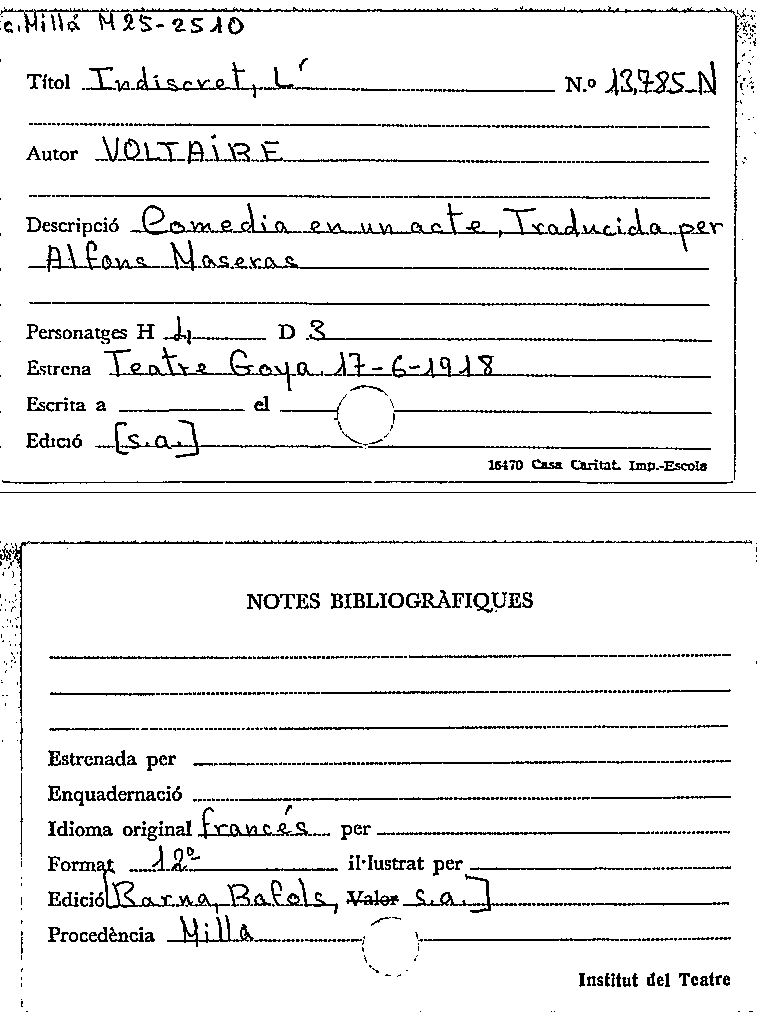 c.Millá M25-2510
Títol Indiscret, L' N.º 13,785-N
Autor VOLTAIRE
Descripció Comedia en un acte, Traducida per
Alfons Maseras
Personatges H 4 D 3
Estrena Teatre Goya 17-6-1918
Escrita a el
Edició [s.a.]
16470 Casa Caritat. Imp.-Escola
NOTES BIBLIOGRÀFIQUES
Estrenada per
Enquadernació
Idioma original francés per
Format 12º il·lustrat per
Edició [Barna, Bafols, Valor s.a.]
Procedència Millá
Institut del Teatre